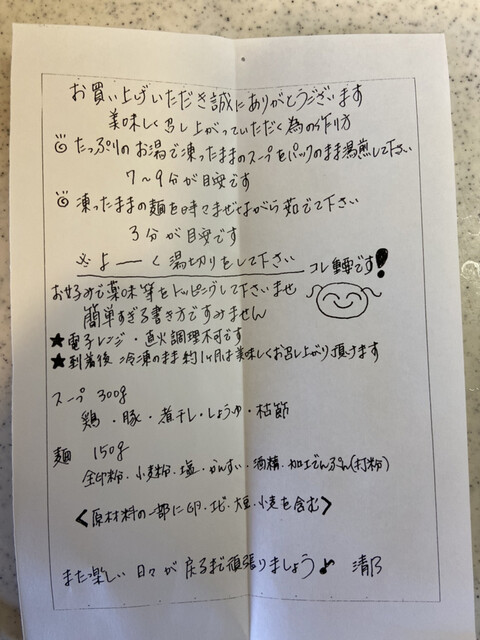 お買い上げいただき誠にありがとうございます
美味しく召し上がっていただく為の作り方
たっぷりのお湯で凍ったままのスープをパックのまま湯煎して下さい
7〜9分が目安です
凍ったままの麺を時々まぜながら茹でて下さい
3分が目安です
※よーく湯切りをして下さい
コレ重要です!
お好みで薬味等をトッピングして下さいませ
簡単すぎる書き方ですみません
★電子レンジ・直火調理不可です
★到着後 冷凍のまま約1ヶ月は美味しくお召し上がり頂けます
スープ 300g
鶏・豚・煮干し・しょうゆ・枯節
麺 150g
全卵粉・小麦粉・塩・かんすい・酒精・加工でんぷん(打粉)
<原材料の一部に卵・エビ・大豆・小麦を含む>
また楽しい日々が戻るまで頑張りましょう♪ 清乃